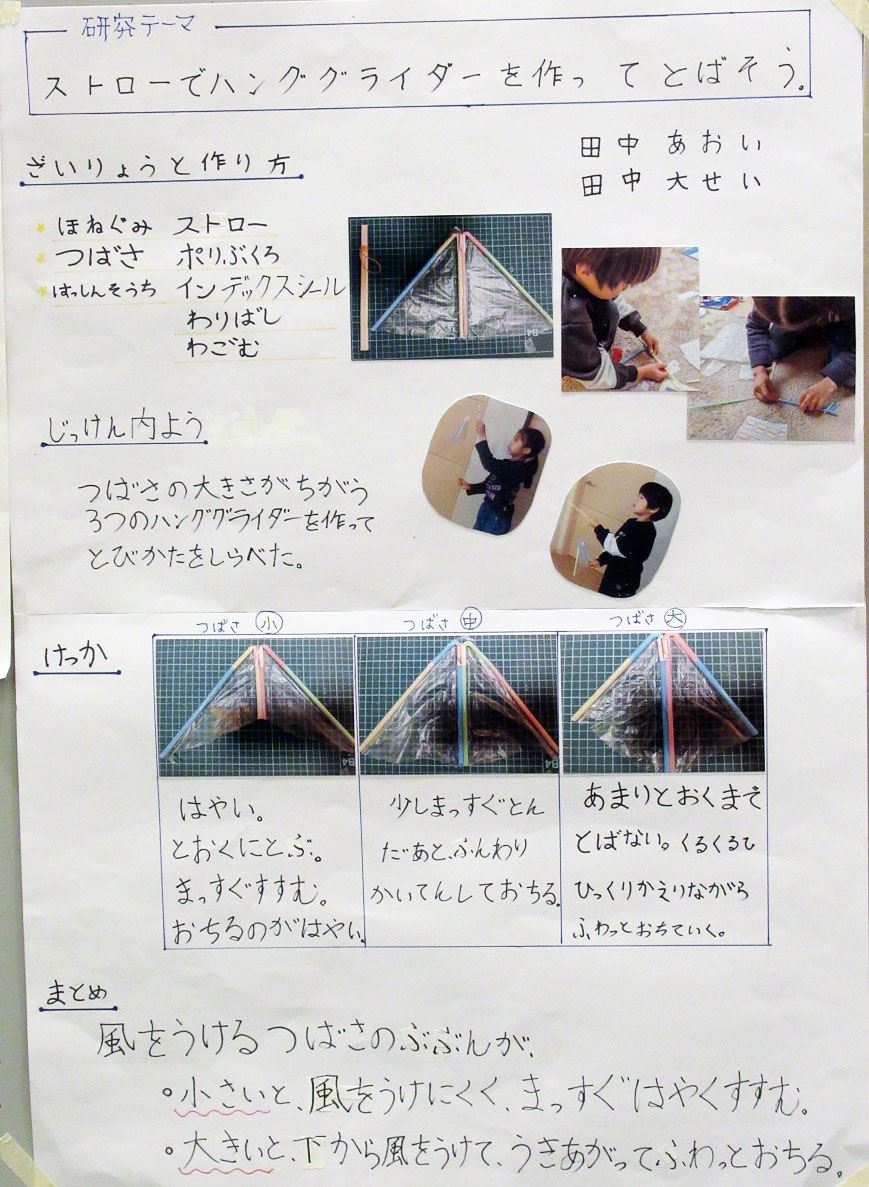 研究テーマ
ストローでハンググライダーを作ってとばそう。
田中 あおい
田中 大せい
ざいりょうと作り方
ほねぐみ ストロー
つばさ ポリぶくろ
はっしんそうち インデックスシール
わりばし
わごむ
じっけん内よう
つばさの大きさがちがう
3つのハンググライダーを作って
とびかたをしらべた。
けっか
つばさ 小
つばさ 中
つばさ 大
はやい。
とおくにとぶ。
まっすぐすすむ。
おちるのがはやい。
少しまっすぐとん
だあと、ふんわり
かいてんしておちる。
あまりとおくまで
とばない。くるくるひ
ひっくりかえりながら
ふわっとおちていく。
まとめ
風をうけるつばさのぶぶんが、
・小さいと、風をうけにくく、まっすぐはやくすすむ。
・大きいと、下から風をうけて、うきあがってふわっとおちる。